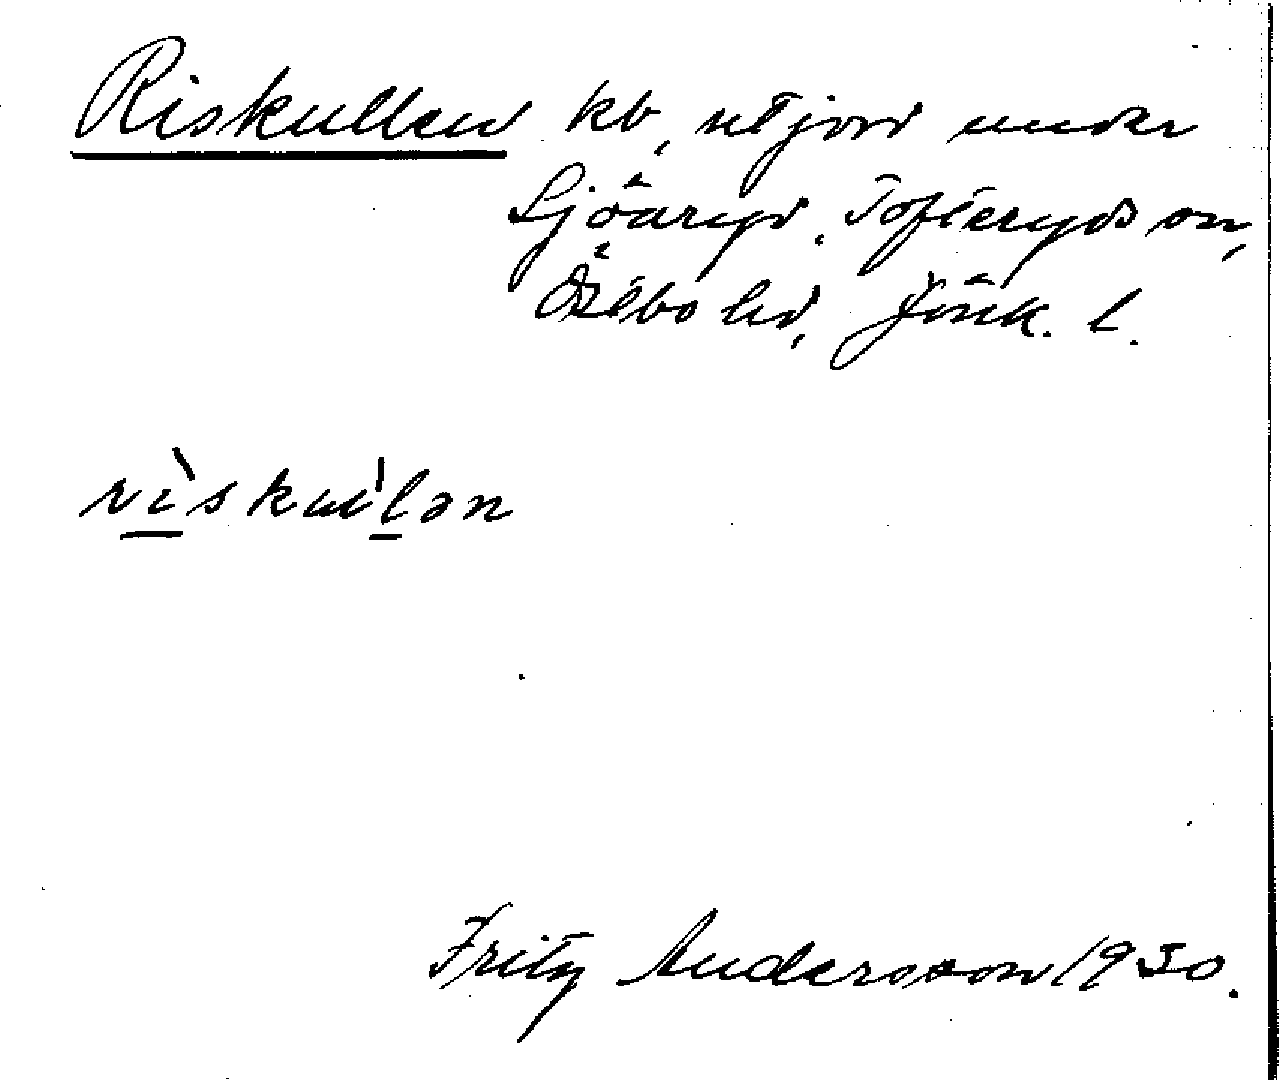 Riskullen kb, utjord under
Sjöaryd, Tofteryds sn,
Östbo hd, Jönk. l.
rìskuˈlən
Fritz Andersson 1930.